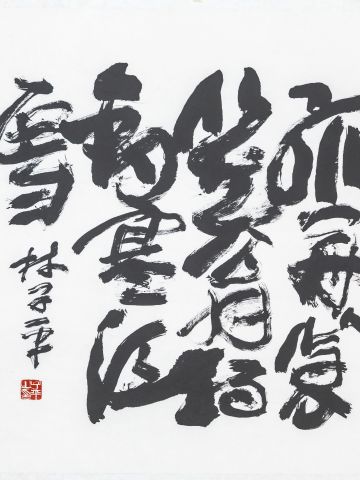 孤舟蓑
笠翁独
釣寒江
雪
林子平